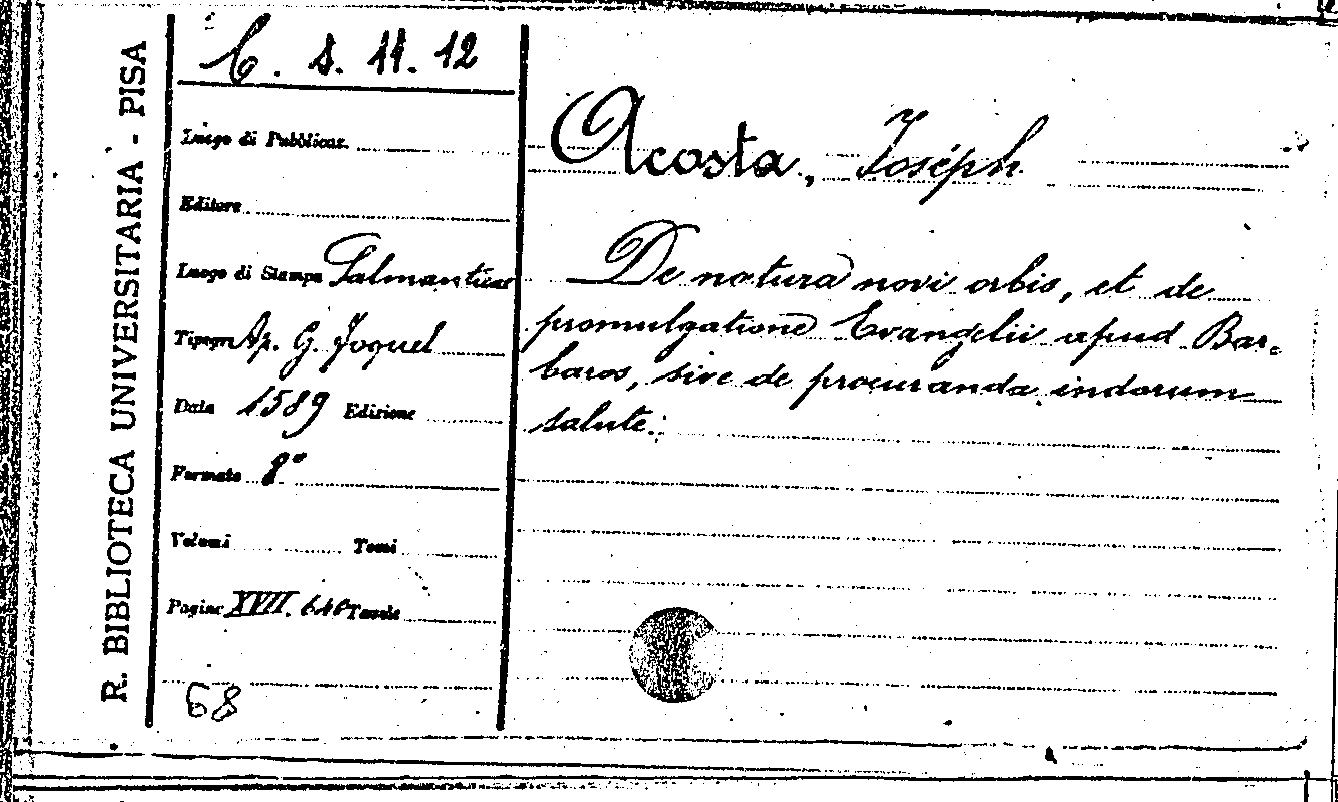 R. BIBLIOTECA UNIVERSITARIA - PISA
C. s. 11. 12
Luogo di Pubblicaz.
Editore
Luogo di Stampa Salmanticae
Tipogr. Ap. G. Foquel
Data 1589 Edizione
Formato 8°
Volumi Tomi
Pagine XVII. 640 Tavole
68
Acosta, Joséph
De natura novi orbis, et de
promulgatione Evangelii apud Bar-
baros, sive de procuranda indorum
salute.